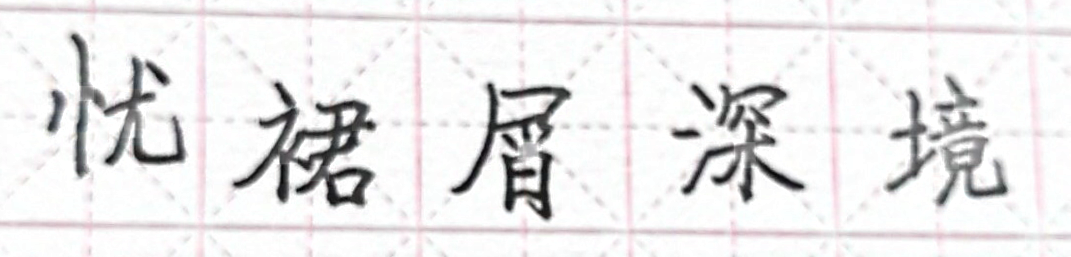 忧裙屑深境